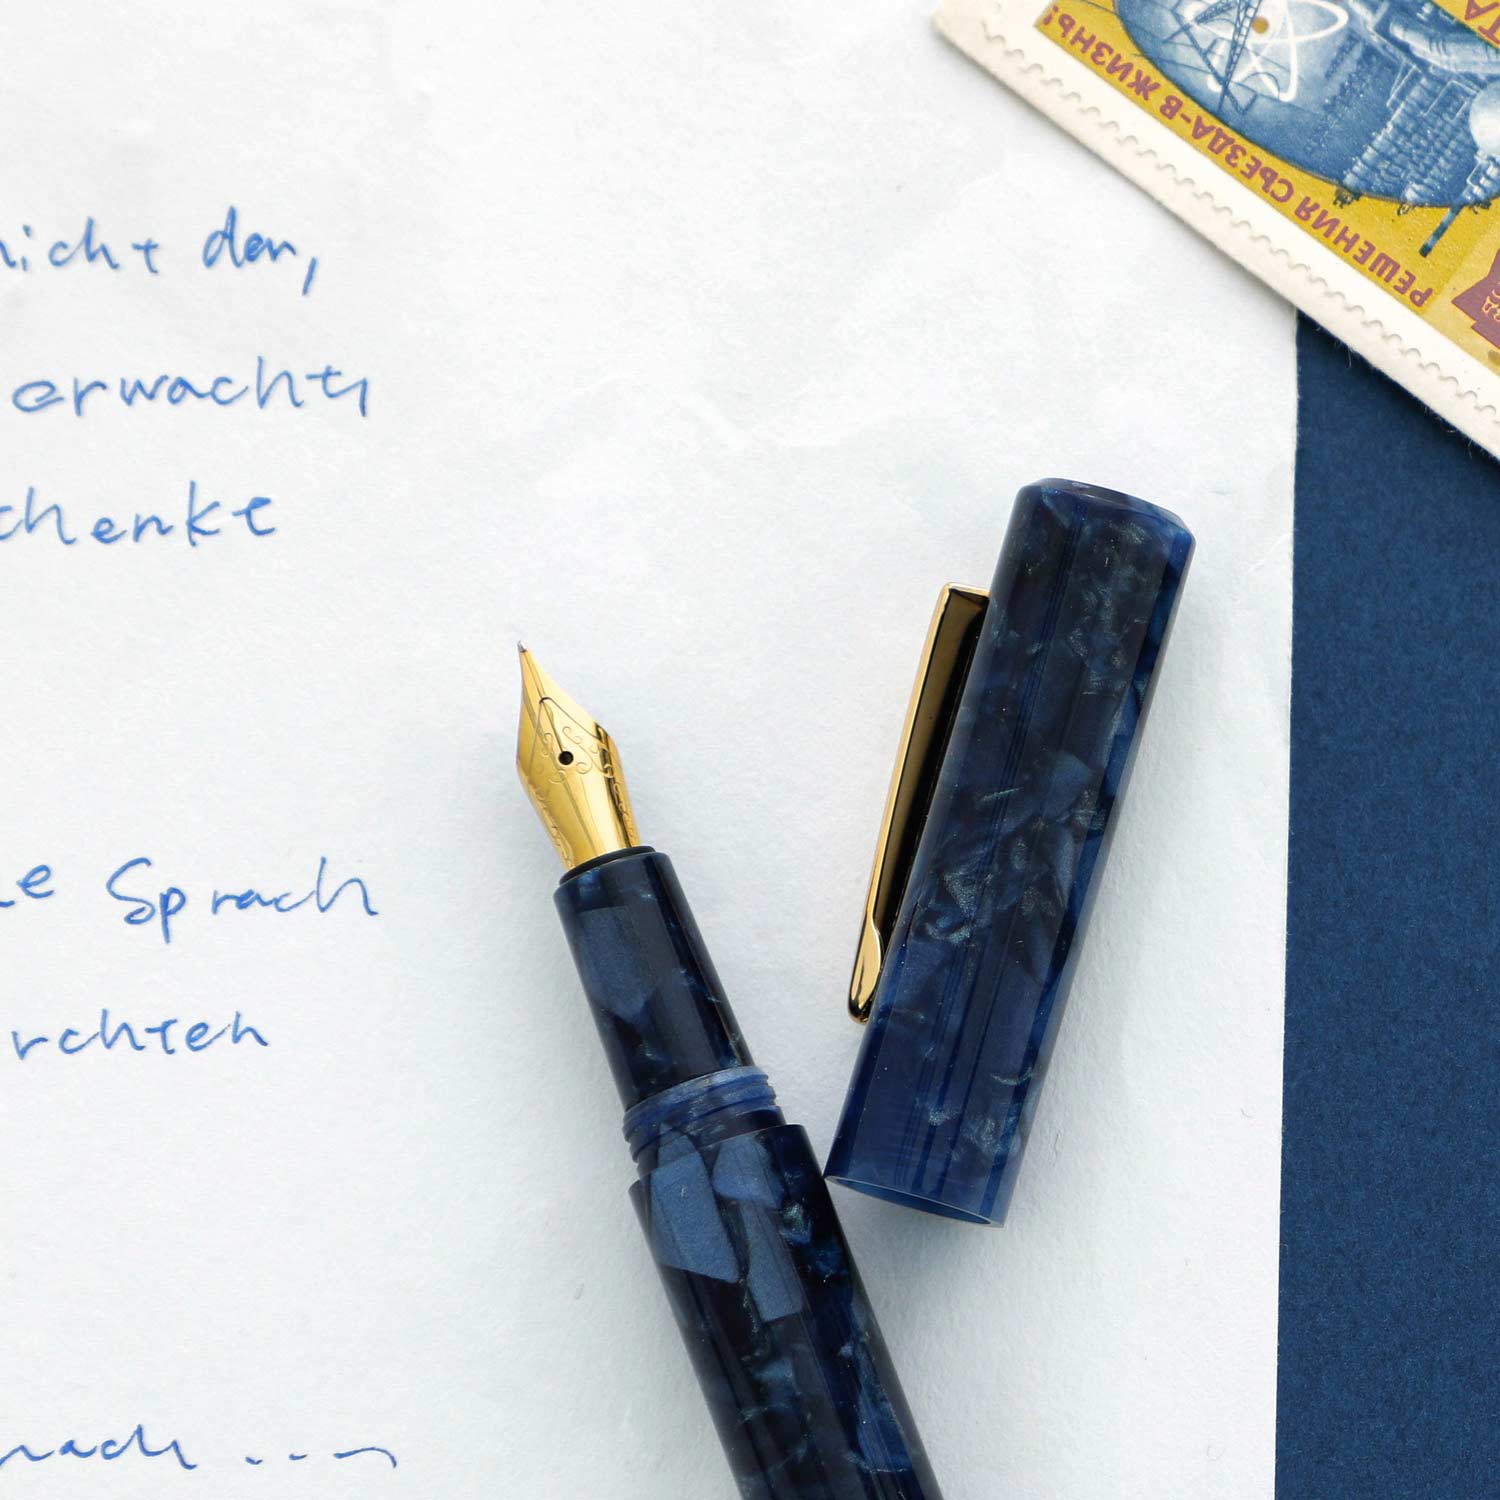 nicht der,
erwacht,
chenke
e Sprach
rchten
РЕШЕНИЯ СЪЕЗДА-В ЖИЗНЬ!